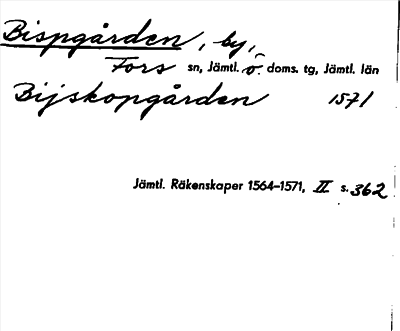 Bispgården, by,
Fors sn, Jämtl. ö. doms. tg, Jämtl. län
Bijskopgården 1571
Jämtl. Räkenskaper 1564–1571, II s. 362